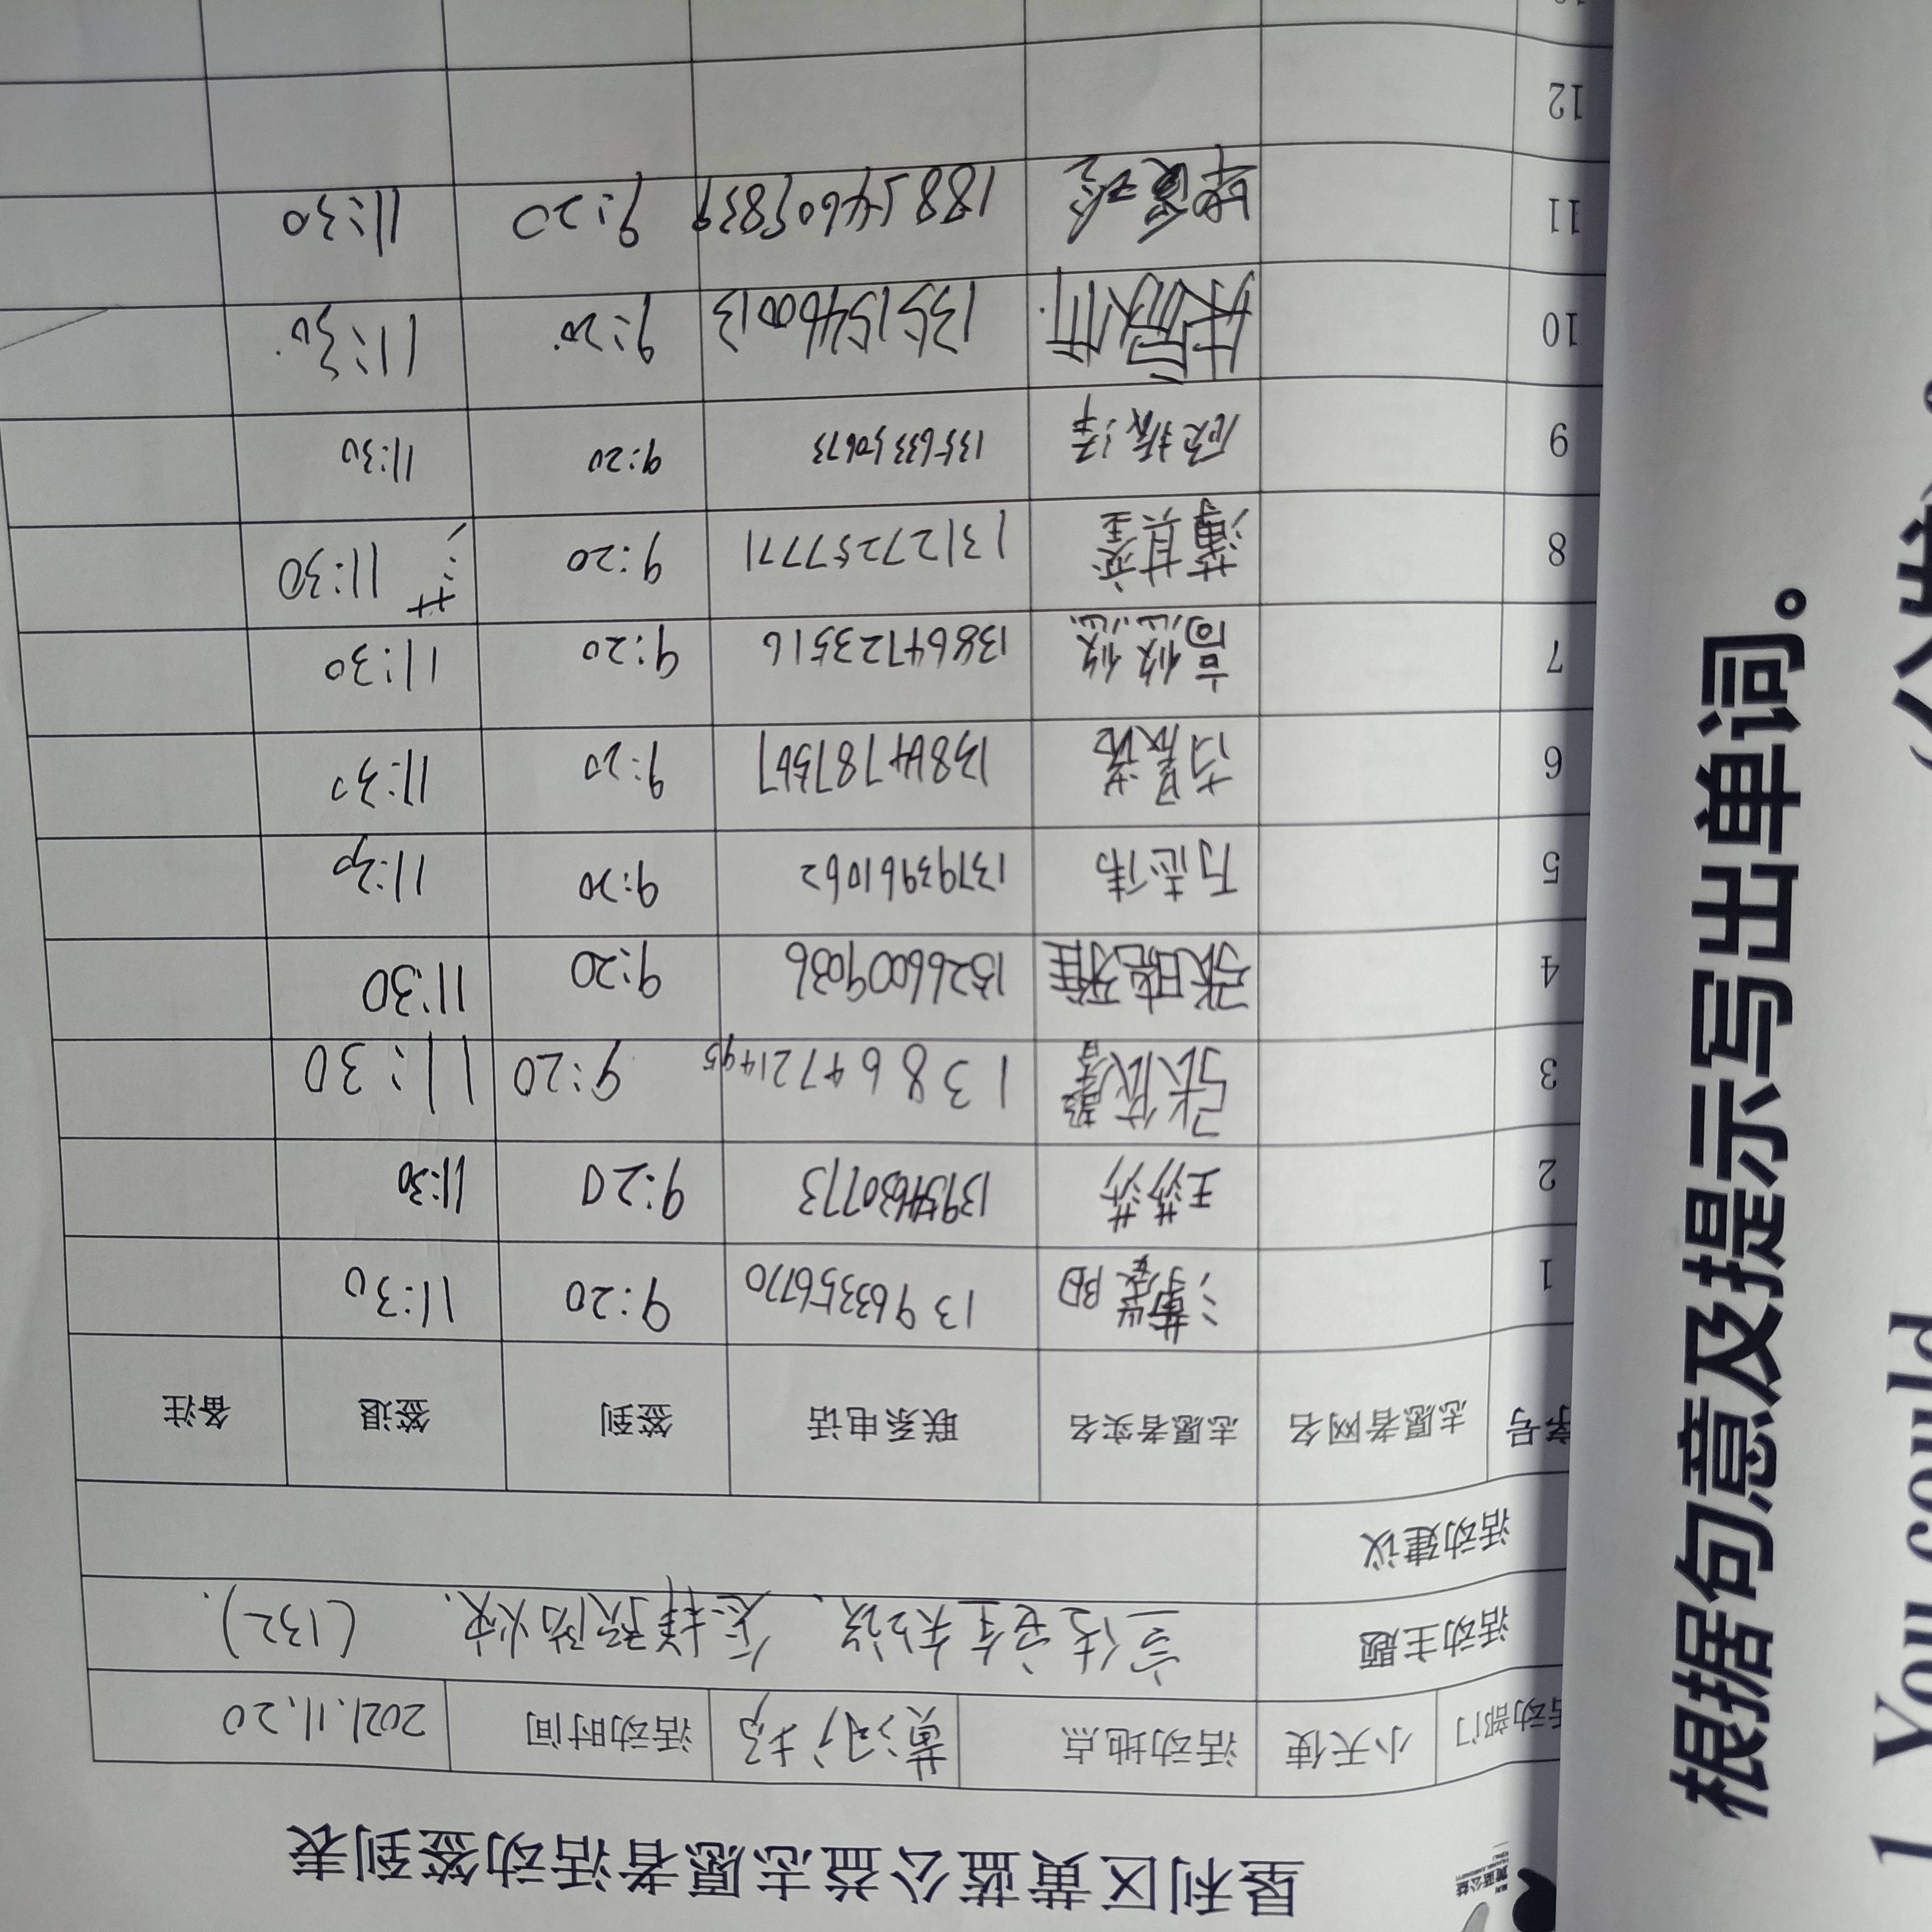 垦利区黄蓝公益志愿者活动签到表
活动部门 小天使 活动地点 黄河广场 活动时间 2021.11.20
活动主题 宣传安全知识、怎样预防火灾. (132).
活动建议
序号 志愿者网名 志愿者实名 联系电话 签到 签退 备注
1 13963356770 9:20 11:30
2 王莎莎 13954630773 9:20 11:30
3 张依馨 13864721495 9:20 11:30
4 张聪雅 15266009036 9:20 11:30
5 万志伟 13793961062 9:20 11:30
6 9:20 11:30
7 高悠悠 13864723516 9:20 11:30
8 13127257771 9:20 11:30
9 13563350673 9:20 11:30
10 13515460013 9:20 11:30
11 18854605839 9:20 11:30
12
根据句意及提示写出单词。
1 You could